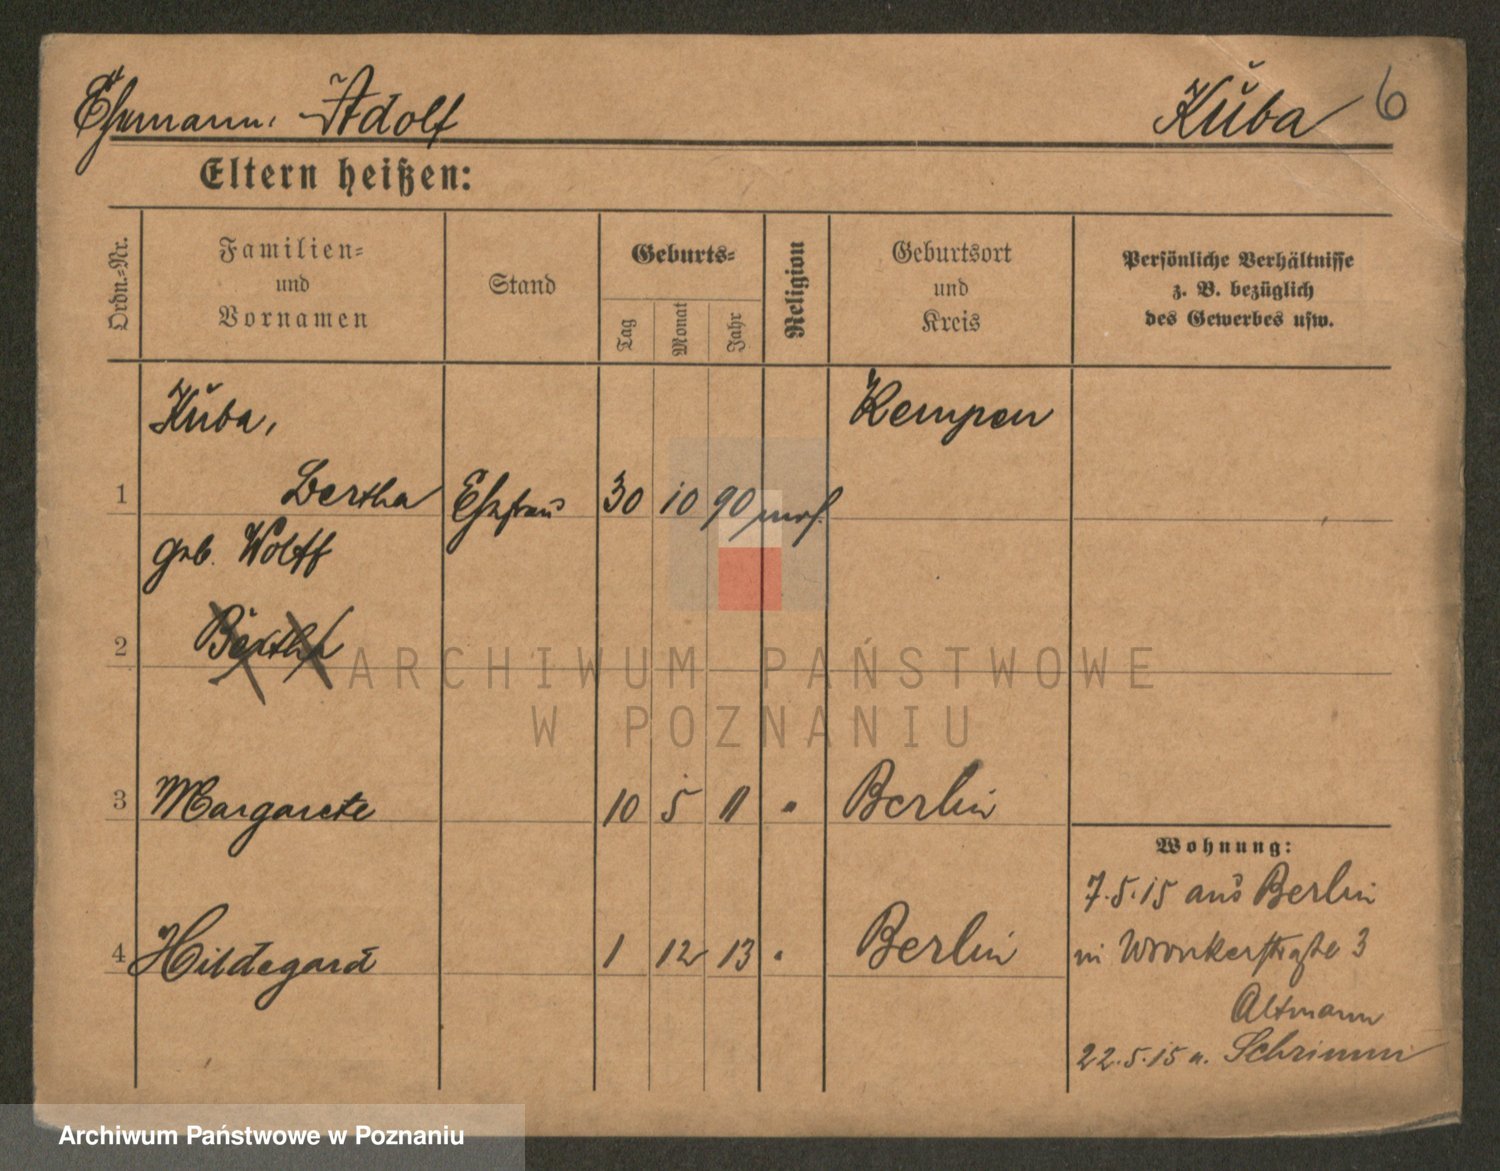 Ehemann: Adolf Kuba 6
Eltern heißen:
Ordn.=Nr.
Familien=
und
Vornamen
Stand
Geburts=
Tag
Monat
Jahr
Religion
Geburtsort
und
Kreis
Persönliche Verhältnisse
z. B. bezüglich
des Gewerbes usw.
Kuba, Kempen
1 Bertha Ehefrau 30 10 90 mos.
geb. Wolff
2 Bertha
ARCHIWUM PAŃSTWOWE
W POZNANIU
3 Margarete 10 5 11 " Berlin
Wohnung:
7.5.15 aus Berlin
4 Hildegard 1 12 13 " Berlin
in Wronkerstraße 3
Altmann
22.5.15 n. Schrimm
Archiwum Państwowe w Poznaniu